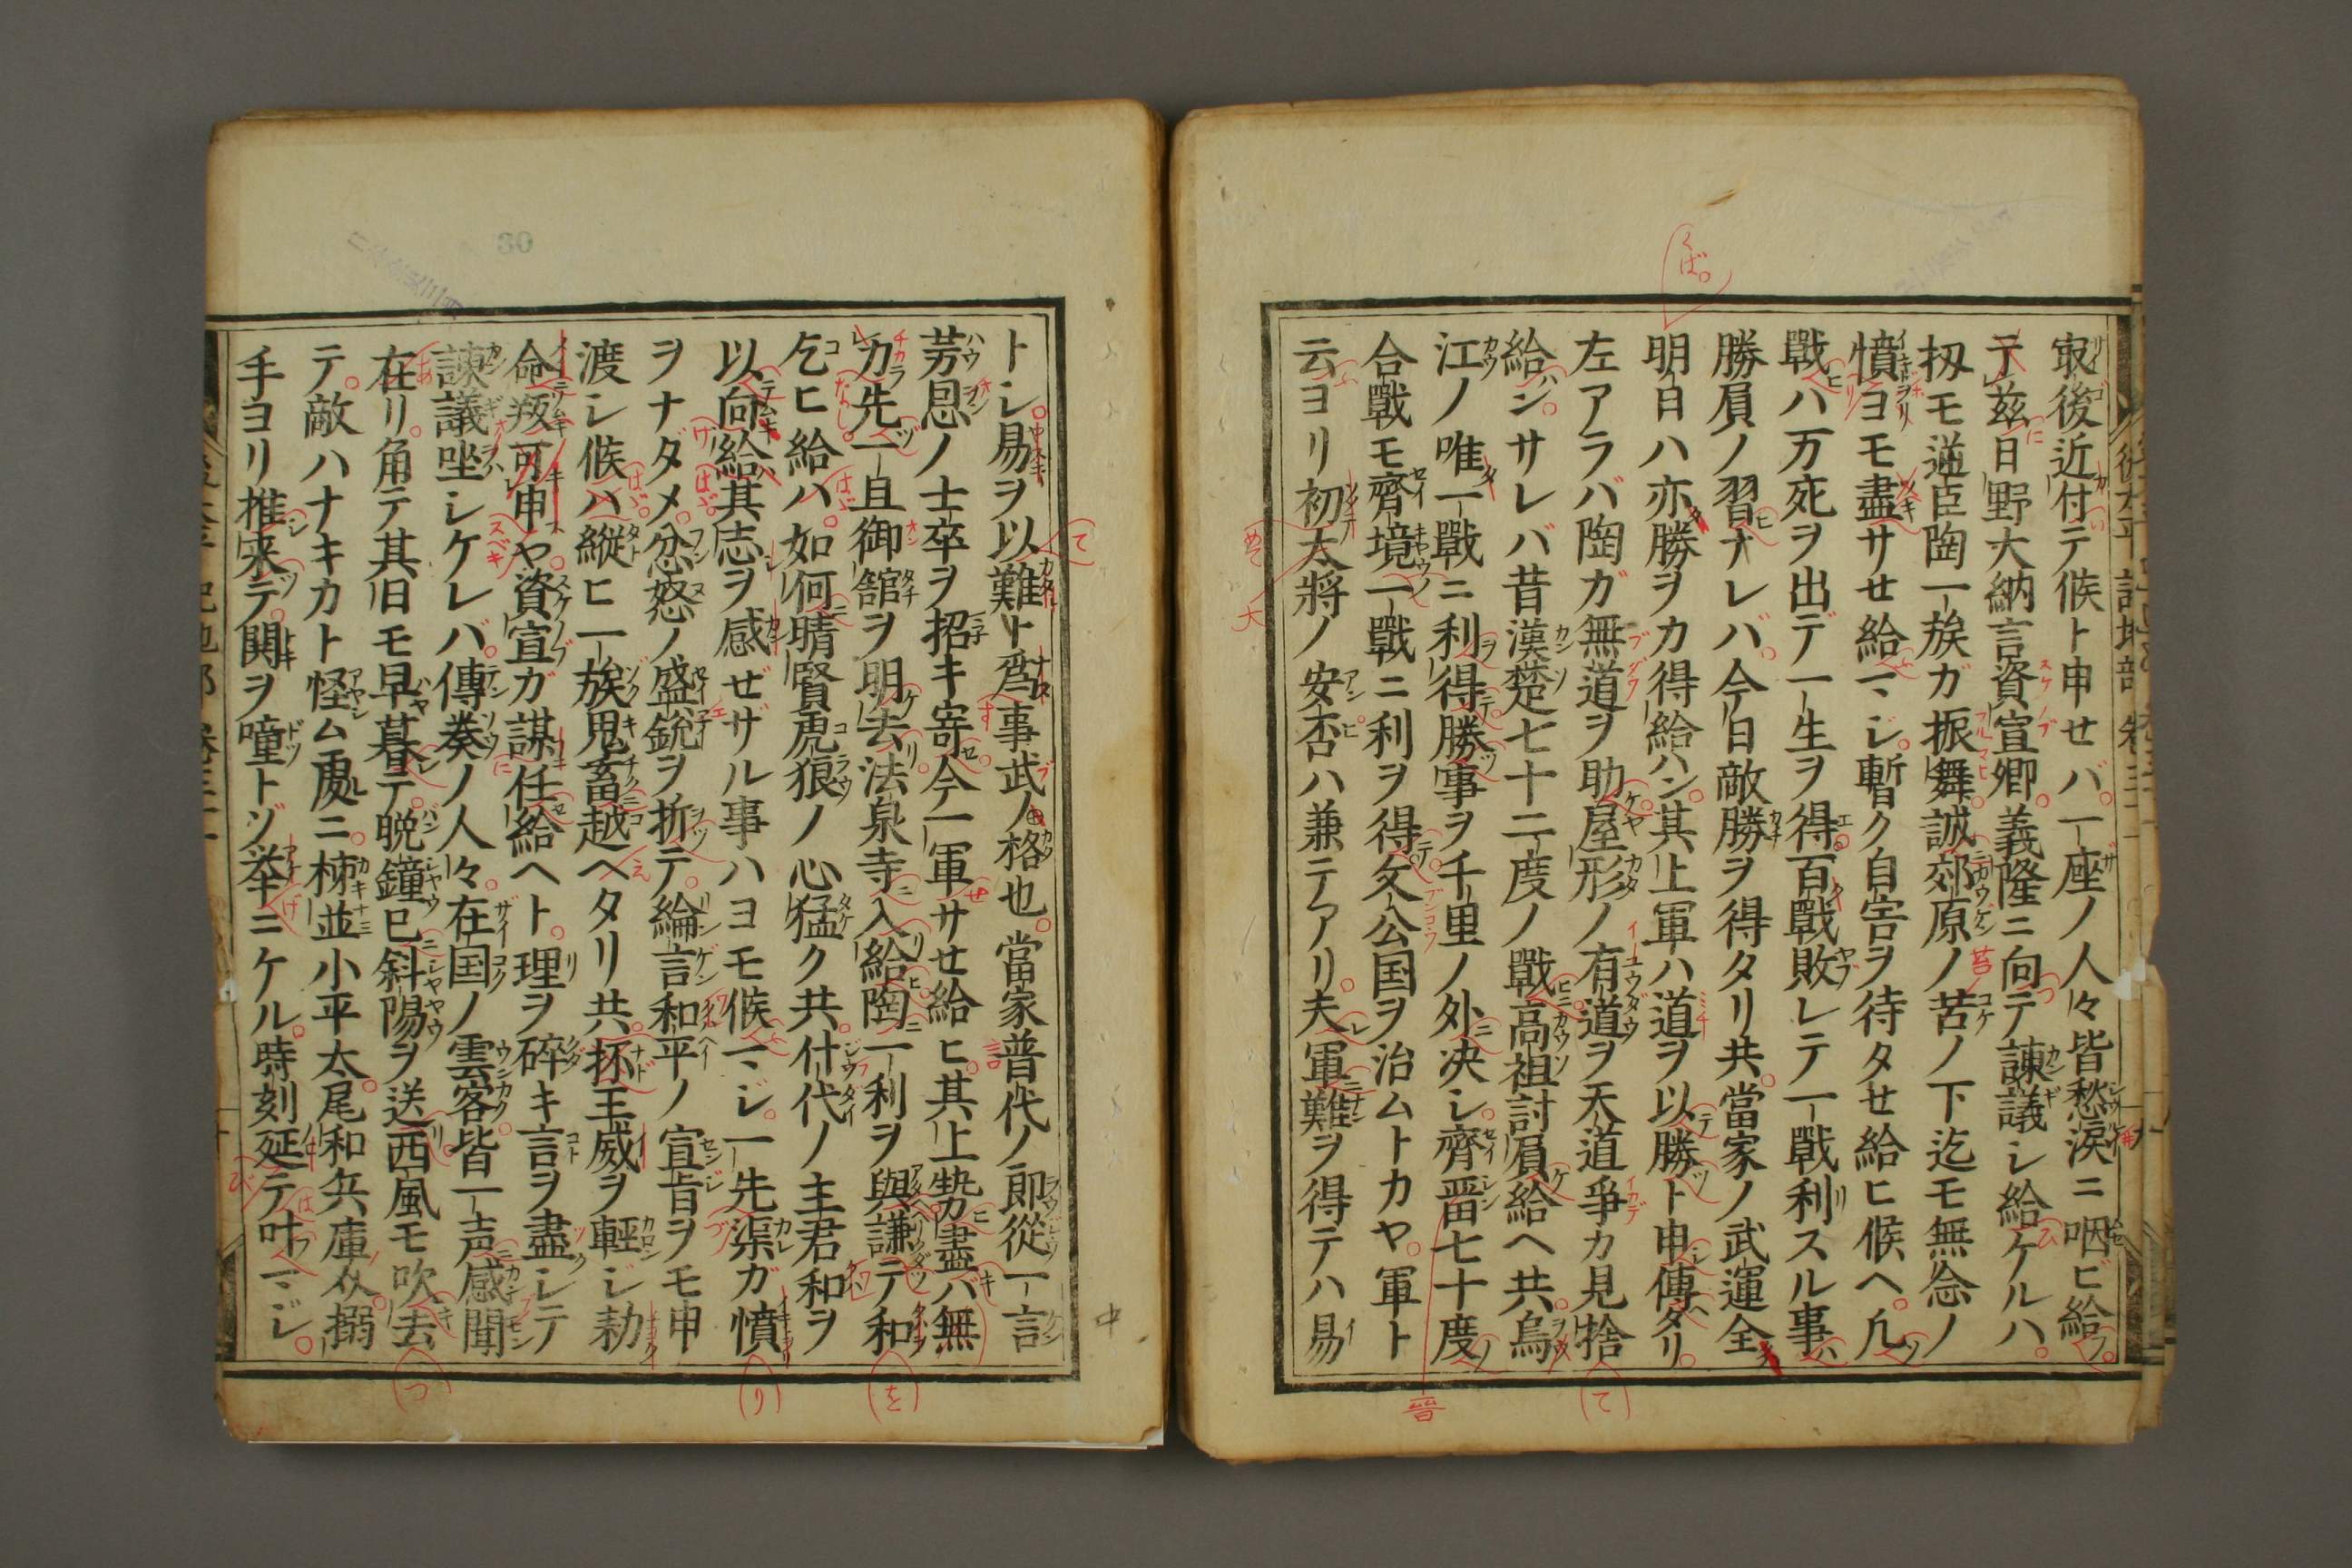 㝡後近付テ候ト申せバ一座ノ人々皆愁涙ニ咽ビ給フ
于茲日野大納言資宣卿義隆ニ向テ諫議シ給ケルハ
扨モ逆臣陶一族ガ振舞誠郊原ノ苔ノ下迄モ無念ノ
憤ヨモ盡サせ給ハジ暫ク自害ヲ待タせ給ヒ候ヘ凡
戰ハ万死ヲ出デ一生ヲ得百戰敗レテ一戰利スル事
勝負ノ習ナレバ今日敵勝ヲ得タリ共當家ノ武運全
明日ハ亦勝ヲカ得給ハン其上軍ハ道ヲ以勝ト申傳タリ
左アラバ陶ガ無道ヲ助屋形ノ有道ヲ天道爭カ見捨
給ハンサレバ昔漢楚七十二度ノ戰高祖討負給ヘ共烏
江ノ唯一戰ニ利得勝事ヲ千里ノ外ニ决シ齊晋七十度
合戰モ齊境一戰ニ利ヲ得文公国ヲ治ムトカヤ軍ト
云ヨリ初大將ノ安否ハ兼テアリ夫軍難ヲ得テハ易
トシ易ヲ以難ト爲事武ノ格也當家普代ノ郎從一言
芳恩ノ士卒ヲ招キ寄今一軍サせ給ヒ其上勢盡バ無
力先一且御舘ヲ明去法泉寺ニ入給陶ニ一利ヲ與謙テ和
乞ヒ給ハ如何晴賢虎狼ノ心猛ク共什代ノ主君和ヲ
以向給其志ヲ感ぜザル事ハヨモ候ハジ一先渠ガ憤
ヲナダメ忿怒ノ盛銳ヲ折テ綸言和平ノ宣旨ヲモ申
渡シ候ハ縱ヒ一族鬼畜越ヘタリ共抔王威ヲ輕ジ勅
命叛可申ヤ資宣ガ謀任給ヘト理ヲ碎キ言ヲ盡シテ
諫議坐シケレバ傳奏ノ人々在国ノ雲客皆一声感聞
在リ角テ其旧モ早暮テ晩鐘已斜陽ヲ送西風モ吹去
テ敵ハナキカト怪ム處ニ柿並小平太尾和兵庫从搦
手ヨリ推寀テ関ヲ噇トゾ挙ニケル時刻延テ叶ハジ